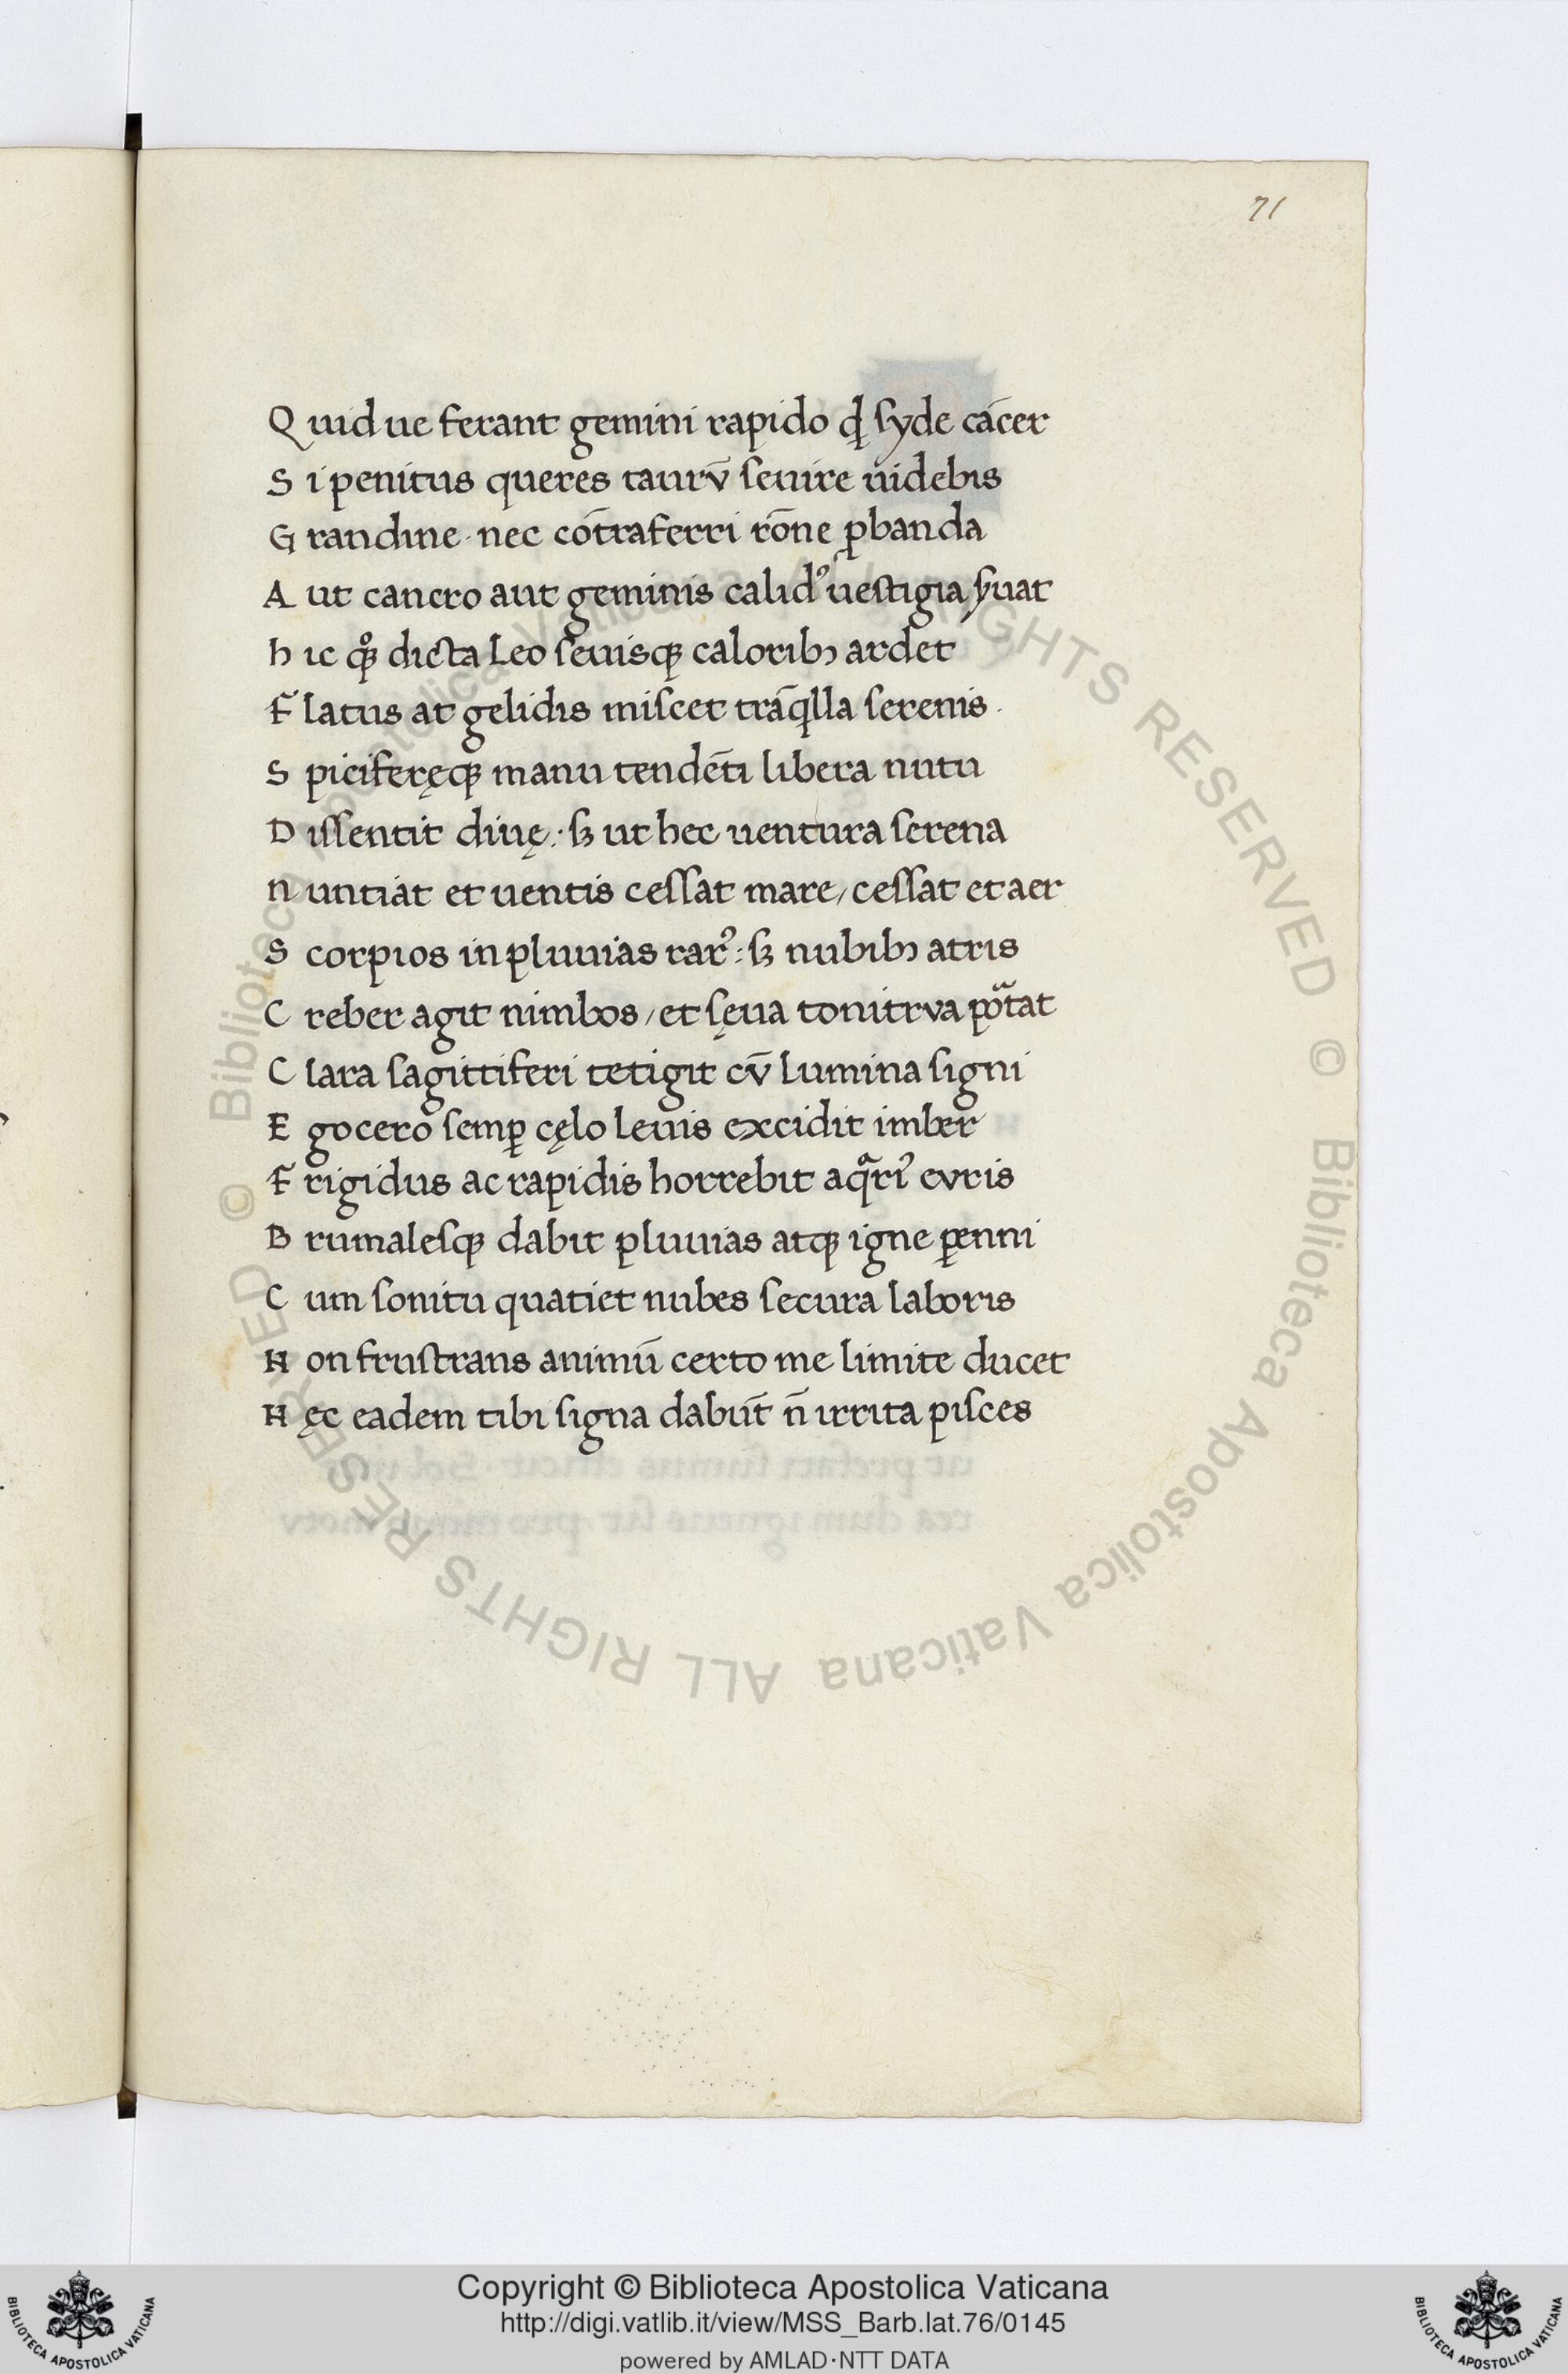 71
Q uid ue ferant gemini rapido qꝫ ſyde cācer
S i penitus queres taurū ſeuire uidebis
G randine · nec cōtraferri rōne ꝓbanda
A ut cancro aut geminis calidꝰ ueſtigia ſ̄uat
h ic qͦꝫ dicta Leo ſeuisqꝫ caloribꝫ ardet
F latus at gelidis miſcet trāq̄lla ſerenis ·
S piciferęqꝫ manu tendēti libera nutu
D iſſentit diuę: ſꝫ ut hec uentura ſerena
n untiat et uentis ceſſat mare / ceſſat et aer
S corpios in pluuias rarꝰ: ſꝫ nubibꝫ atris
C reber agit nimbos / et ſęua tonitrva portat
C lara ſagittiferi tetigit cv̄ lumina ſigni
E gocero ſemꝑ cęlo leuis excidit imber
F rigidus ac rapidis horrebit aqᷓriꝰ evris
B rumaleſqꝫ dabit pluuias atqꝫ igne ꝑenni
C um ſonitu quatiet nubes ſecura laboris
N on fruſtrans animū certo me limite ducet
H ęc eadem tibi ſigna dabūt n̄ irrita piſces
© Biblioteca Apostolica Vaticana ALL RIGHTS RESERVED © Biblioteca Apostolica Vaticana ALL RIGHTS RESERVED
Copyright © Biblioteca Apostolica Vaticana
http://digi.vatlib.it/view/MSS_Barb.lat.76/0145
powered by AMLAD·NTT DATA
BIBLIOTECA APOSTOLICA VATICANA
BIBLIOTECA APOSTOLICA VATICANA